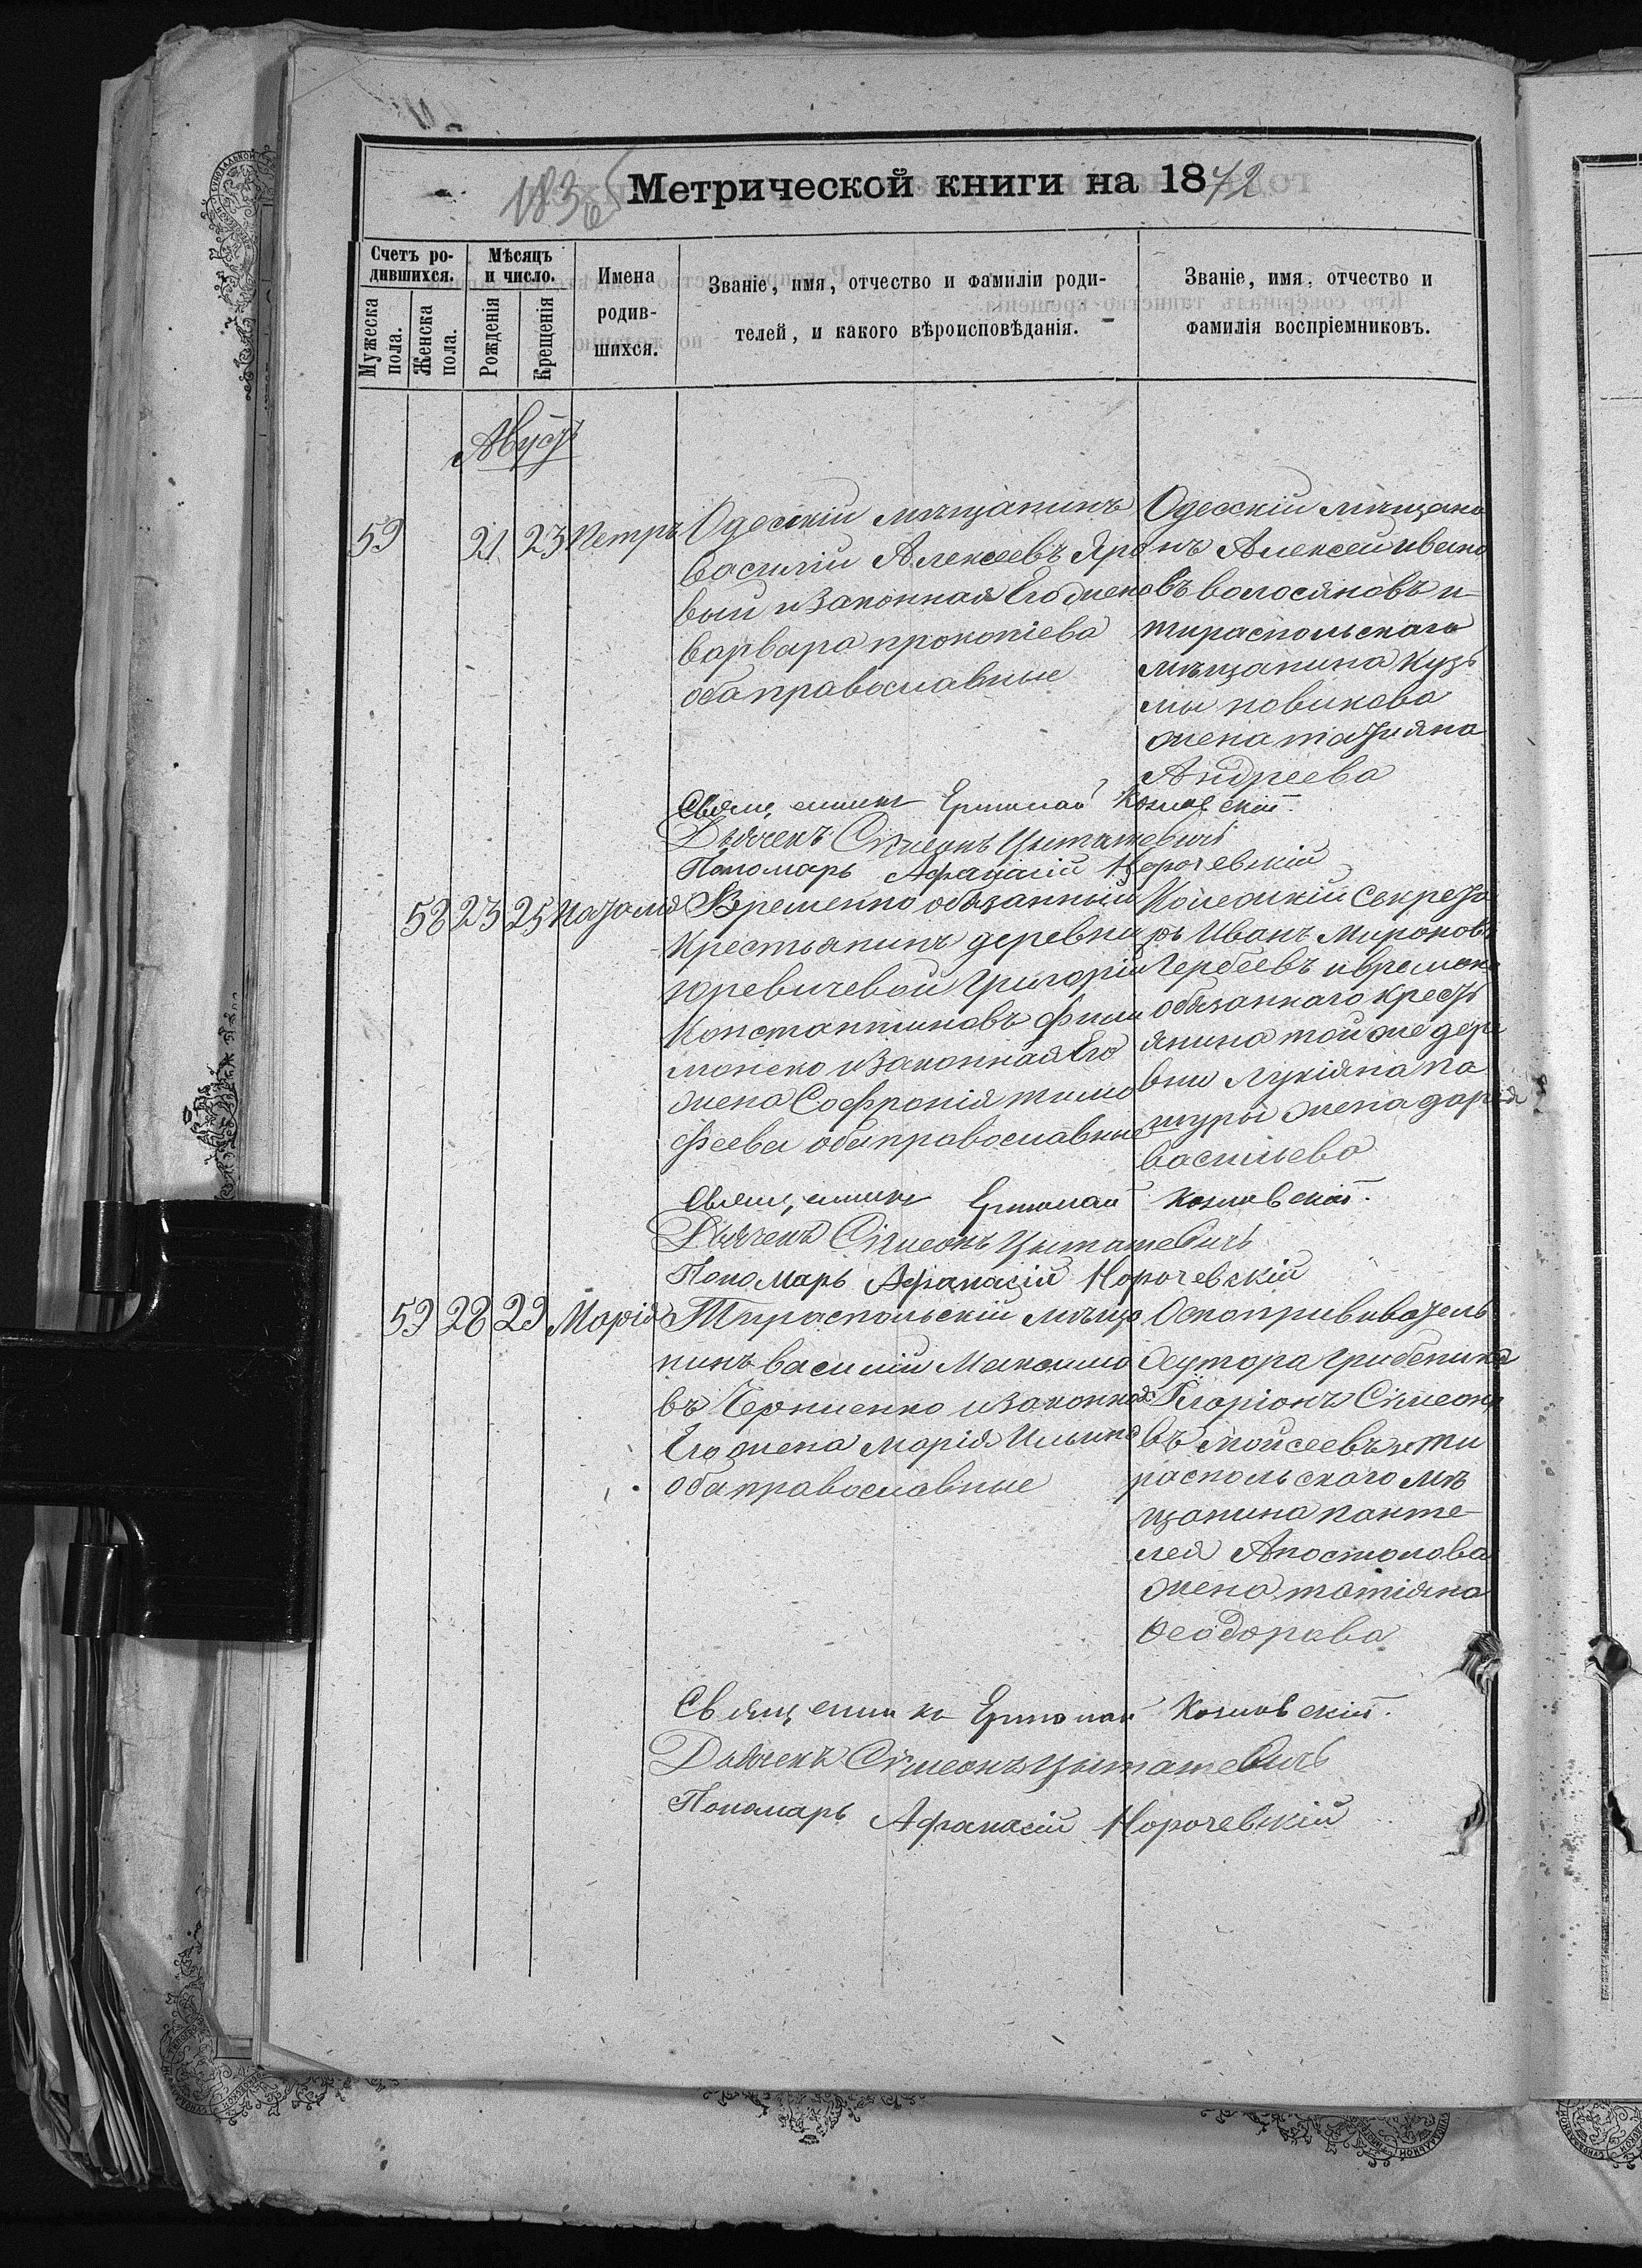 183 об
Метрической книги на 1872
Счетъ ро-
дившихся.
Мѣсяцъ
и число.
Мужеска
пола.
Женска
пола.
Рожденія
Крещенія
Имена
родив-
шихся.
Званіе, имя, отчество и фамиліи роди-
телей, и какого вѣроисповѣданія.
Званіе, имя, отчество и
фамилія воспріемниковъ.
Августъ
59 21 23 Петръ
Одесскій мѣщанинъ
василій Алексеевъ Яро
вый и Законная Его жена
варвара прокопіева
оба православные
Одесскій мѣщани
нъ Алексей ивано
въ волосяновъ и
тираспольскаго
мѣщанина Кузь
мы новикова
жена татияна
Андреева
Священникъ Ермолай Козловскій.
Дьячекъ Сѵмеонъ
Пономарь Афанасій Норочевскій
58 23 25 Наталія
Временно обязанный
Крестьянинъ деревни
юревичевой Григорій
Константиновъ Фили
монско и Законная Его
жена Софронія тимо
феева оба православные
Колежскій Секрета
рь Иванъ Мироновъ
Гербеевъ и времен
обязаннаго кресть
янина той же дере
вни Лукіяна па
шуры жена дарія
васильева
Священникъ Ермолай Козловскій.
Дьячекъ Сѵмеонъ
Пономарь Афанасій Норочевскій
59 28 29 Марія
Тираспольскій мѣща
нинъ василій Максимо
въ Черниенко и Законная
Его жена Марія Ильина
оба православные
Оспопрививатель
Хутора Грибеника
Иларіонъ Сѵмеоно
въ Мойсеевъ и ти
распольскаго мѣ
щанина панте-
лея Апостолова
жена татіяна
Феодорова
Священникъ Ермолай Козловскій.
Дьячекъ Сѵмеонъ
Пономарь Афанасій Норочевскій